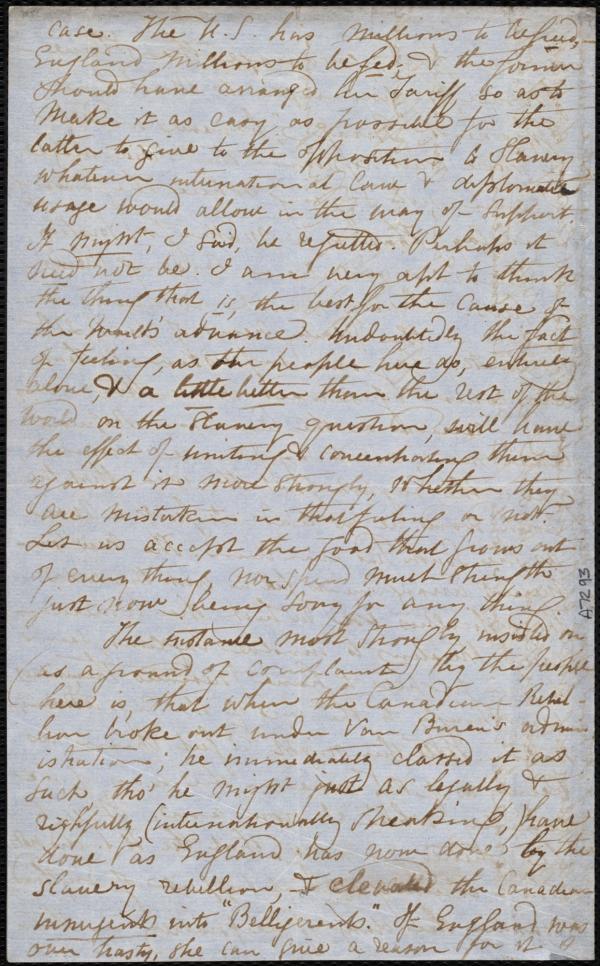 case. The U.S. has millions to be freed,
England millions to be fed; & the former
should have arranged her Tariff so as to
make it as easy as possible for the
latter to give to the opposition to Slavery
whatever international Law & diplomatic
usage would allow in the way of support.
It might, I said, be regretted. Perhaps it
need not be. I am very apt to think
the thing that is, the best for the cause of
the world's advance. Undoubtedly the fact
of feeling, as the people here do, entirely
alone, & a little better than the rest of the
world on the Slavery question, will have
the effect of uniting & concentrating them
against it more strongly, whether they
are mistaken in that feeling or not.
Let us accept the good that grows out
of every thing, nor spend much strength
just now being sorry for any thing.
The instance most strongly insisted on
(as a ground of complaint) by the people
here is, that when the Canadian Rebel-
lion broke out under Van Buren's admin-
istration; he immediately classed it as
such tho' he might just as legally &
rightfully (internationally speaking,) have
done as England has now done by the
slavery rebellion, & elevated the Canadian
insurgents into "Belligerents." If England was
over hasty, she can give a reason for it
A.7.2.93